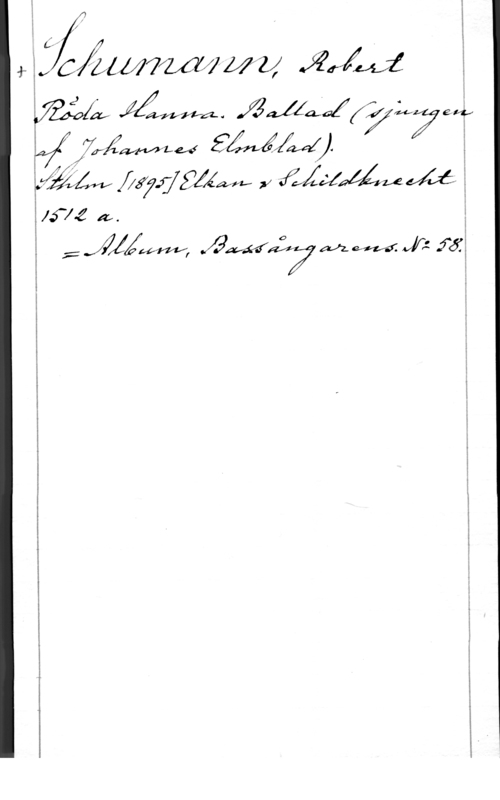 + Schumann, Robert
Röda Hanna. Ballad (sjungen
af Johannes Elmblad).
Sthlm [1895] Elkan & Schildknecht
1512 a.
= Album, Bassångarens. Nº 58.